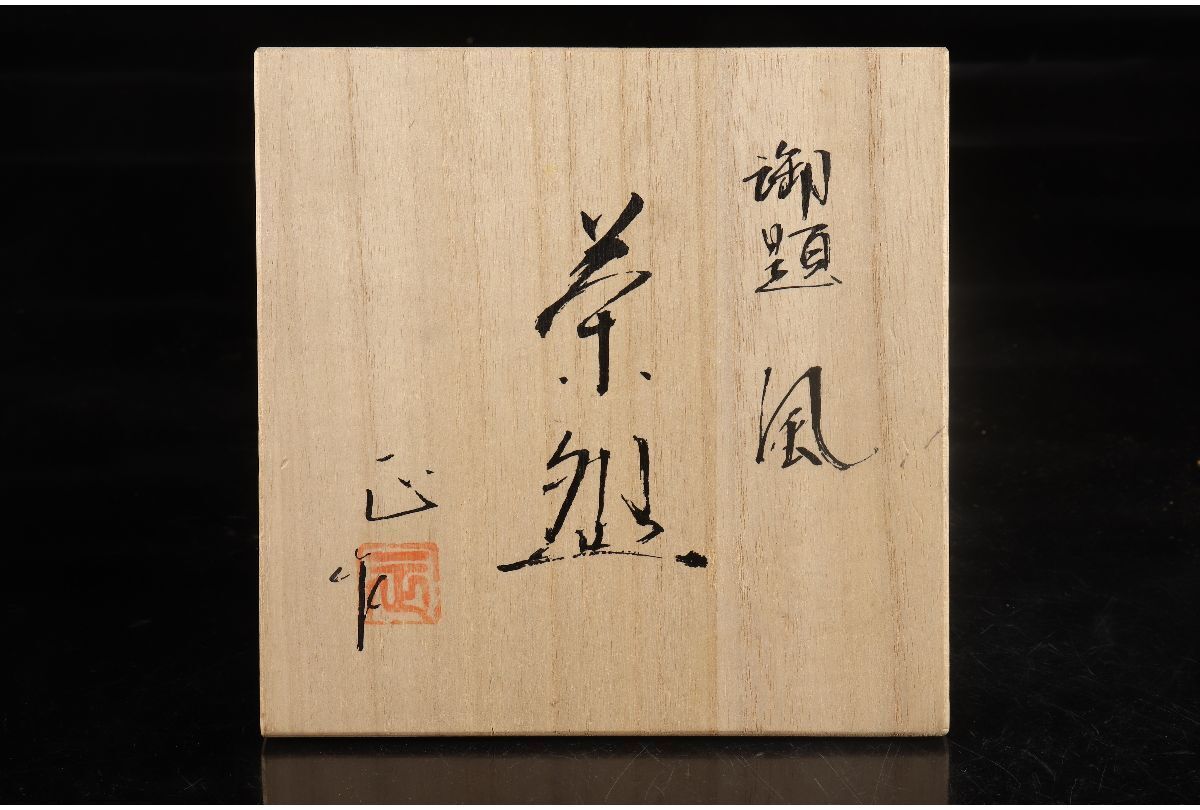 御題 風
茶盌
正作